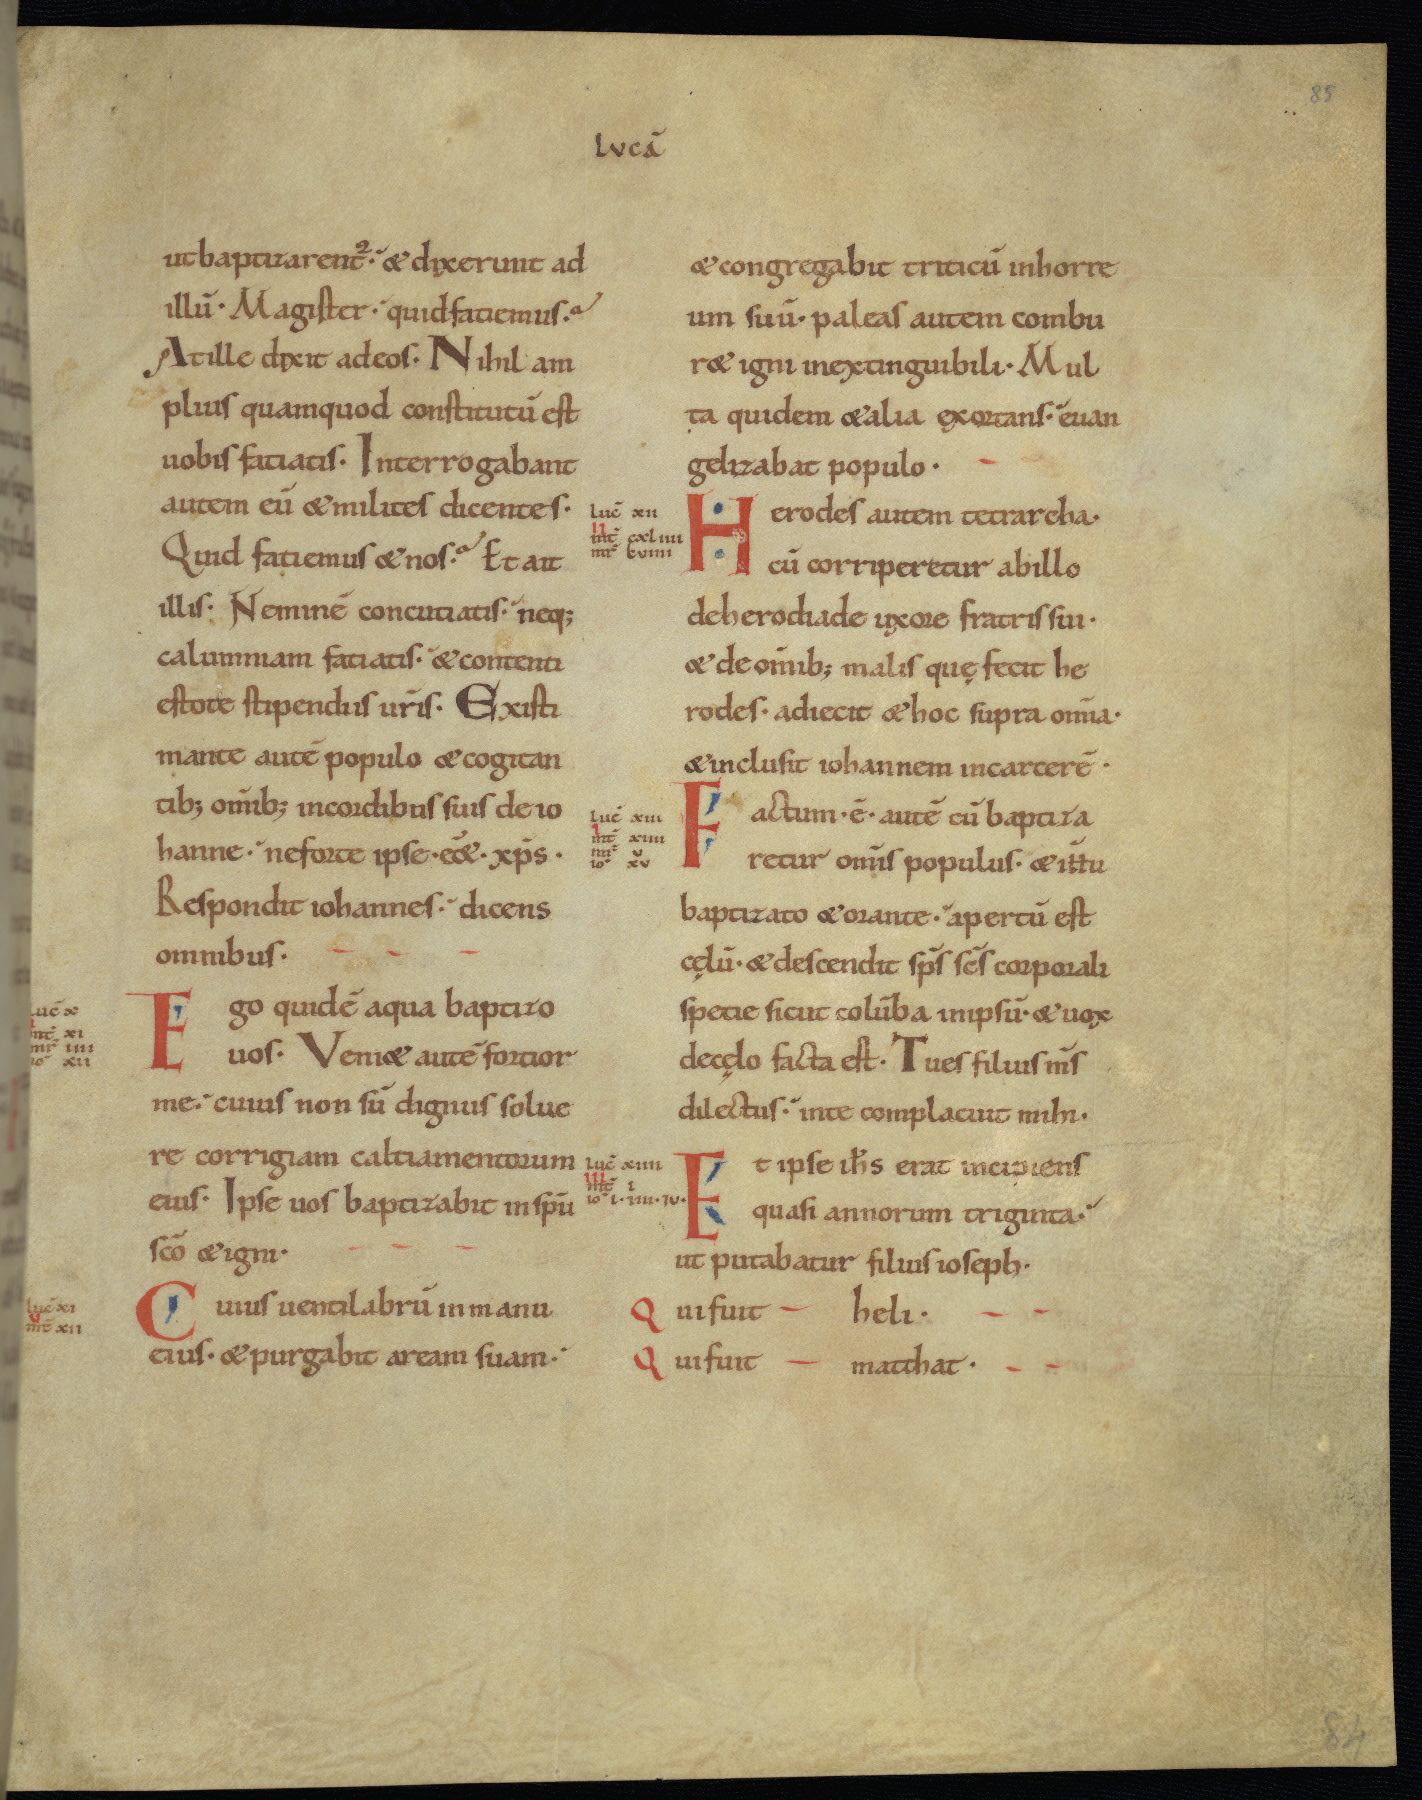 85
LVCĀ
utbaptizarent᷑. & dixerunt ad
illū. Magister. quidfatiemus.
Atille dixit adeos. Nihil am
plius quamquod constitutū est
uobis fatiatis. Interrogabant
autem eū & milites dicentes.
Quid fatiemus & nos. Et ait
illis. Neminē concutiatis. neq;
calumniam fatiatis. & contenti
estote stipendiis ur̄is. Existi
mante autē populo & cogitan
tib; om̄ib; incordibus suis de io
hanne. neforte ipse .eē&. xp̄s.
Respondit iohannes. dicens
omnibus.
Luc̄ x
mt̄ xi
mr̄ iiii
io xii
Ego quidē aqua baptizo
uos. Veni& autē fortior
me. cuius non sū dignus solue
re corrigiam caltiamentorum
eius. Ipse uos baptizabit inspū
scō & igni.
Luc̄ xi
v
mt̄ xii
Cuius uentilabrū inmanu
eius. & purgabit aream suam.
& congregabit triticū inhorre
um suū. paleas autem combu
r& igni inextinguibili. Mul
ta quidem & alia exortans. euan
gelizabat populo.
Luc̄ xii
ii
mt̄ cxliiii
mr̄ lviiii
Herodes autem tetrarcha.
cū corriperetur abillo
deherodiade uxore fratris sui.
& de om̄ib; malis quę fecit he
rodes. adiecit & hoc supra om̄ia.
& inclusit iohannem incarcerē.
Luc̄ xiii
i
mt̄ xiiii
mr̄ v
io xv
Factum .ē. autē cū baptiza
retur om̄is populus. & ih̄u
baptizato & orante. apertū est
cęlū. & descendit sp̄s sc̄s corporali
spetie sicut colūba inipsū. & uox
decęlo facta est. Tues filius m̄s
dilectus. inte complacuit mihi.
Luc̄ xiiii
iii
mt̄ i
io i. iiii. iv.
Et ipse ih̄s erat incipiens
quasi annorum triginta.
ut putabatur filius ioseph.
Qui fuit heli.
Qui fuit matthat.
84